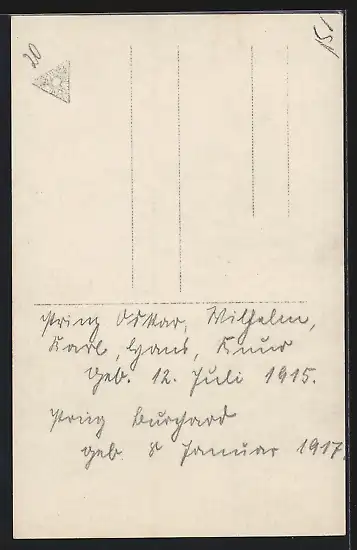 20
15/
Prinz Oskar, Wilhelm,
Karl, Hans, Knud
geb. 12. Juli 1915.
Prinz Burchard
geb. 8 Januar 1917.